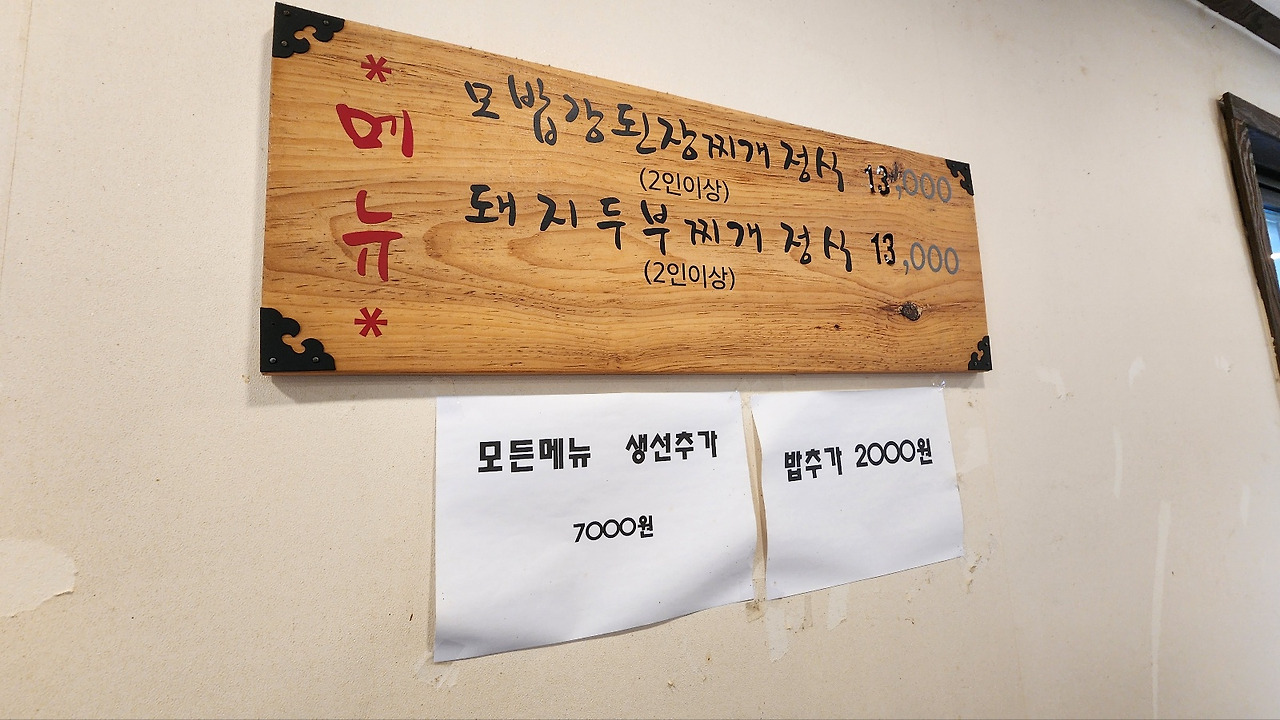 *메뉴*
모밥강된장찌개정식 13,000
(2인이상)
돼지두부찌개정식 13,000
(2인이상)
모든메뉴 생선추가
7000원
밥추가 2000원